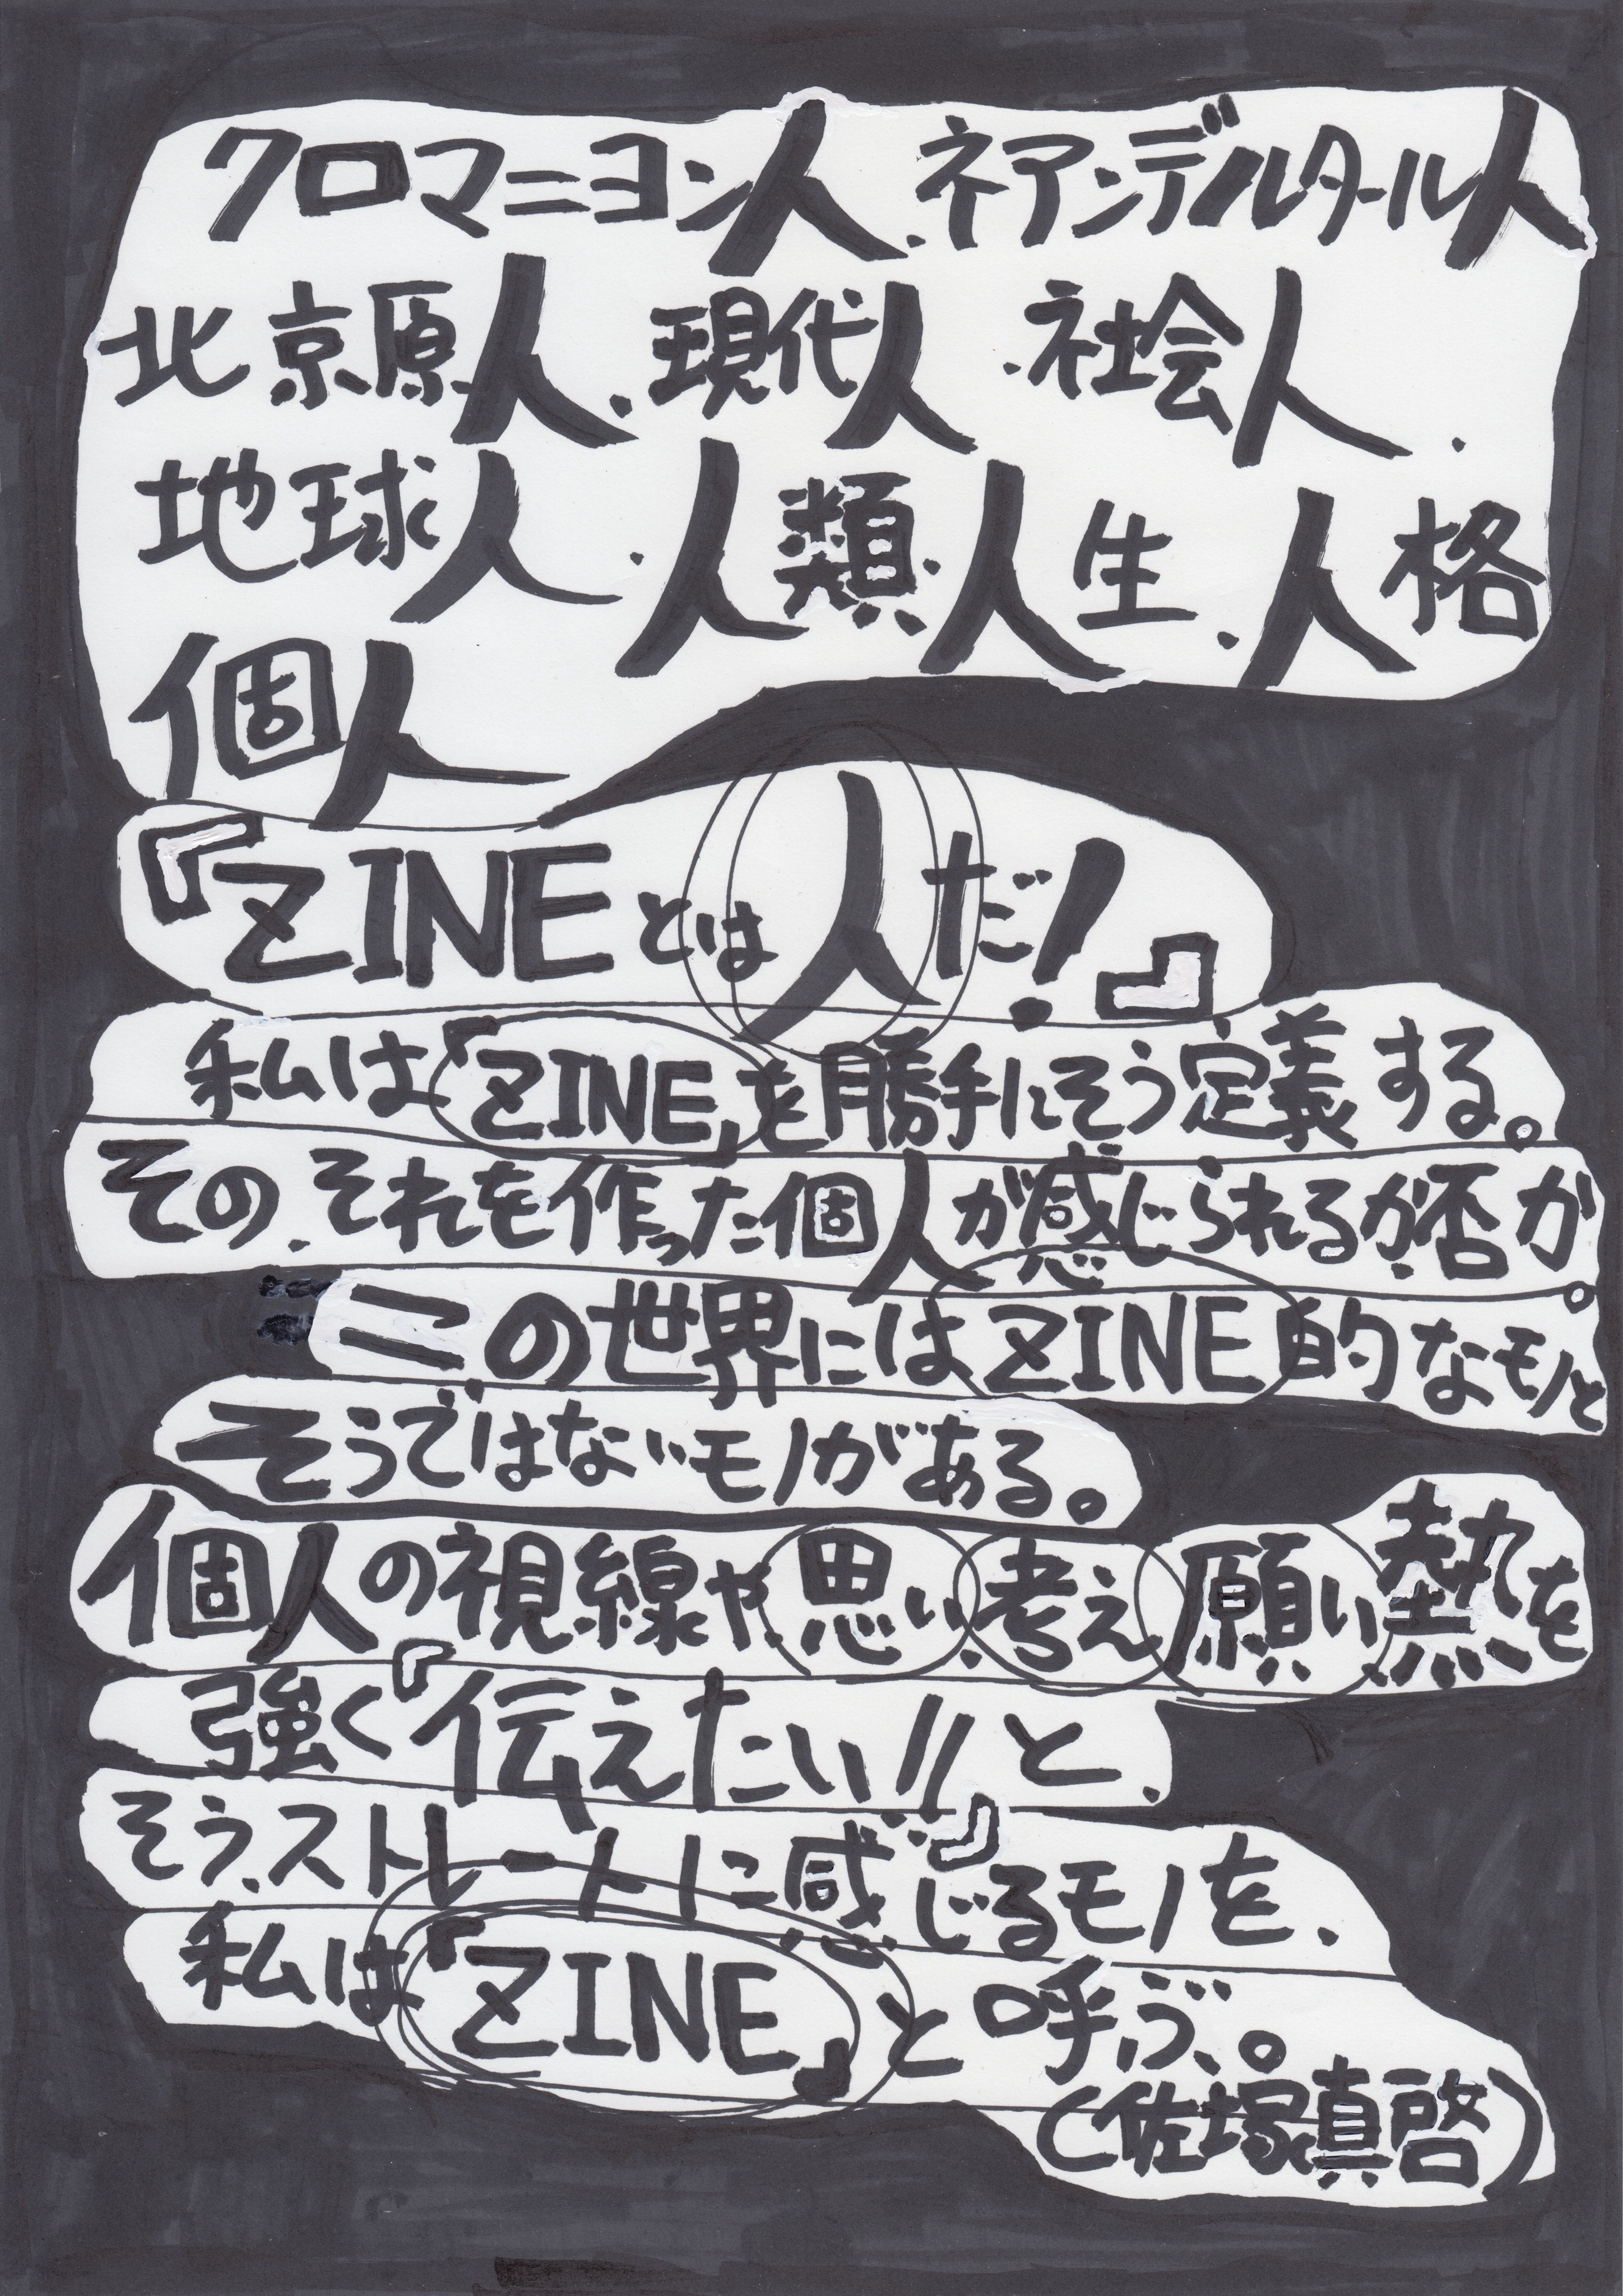 クロマニヨン人.ネアンデルタール人
北京原人.現代人.社会人.
地球人.人類.人生.人格
個人
『ZINEとは人だ!』
私は「ZINE」を勝手にそう定義する。
その.それを作った個人が感じられるか.否か。
この世界にはZINE的なモノと
そうではないモノがある。
個人の視線や思い.考え.願い.熱を
強く『伝えたい!!』と.
そう.ストレートに感じるモノを.
私は「ZINE」と呼ぶ。
(佐塚真啓)